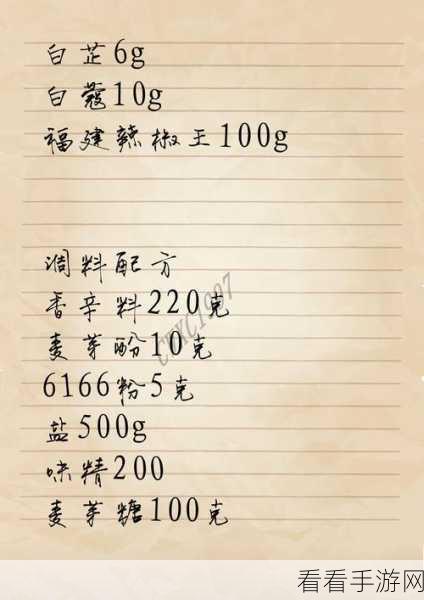 白芷6g
白蔻10g
福建辣椒王100g
调料配方
香辛料220克
麦芽酚10克
6166粉5克
盐500g
味精200
麦芽糖100克
CYXC1997
看看手游网